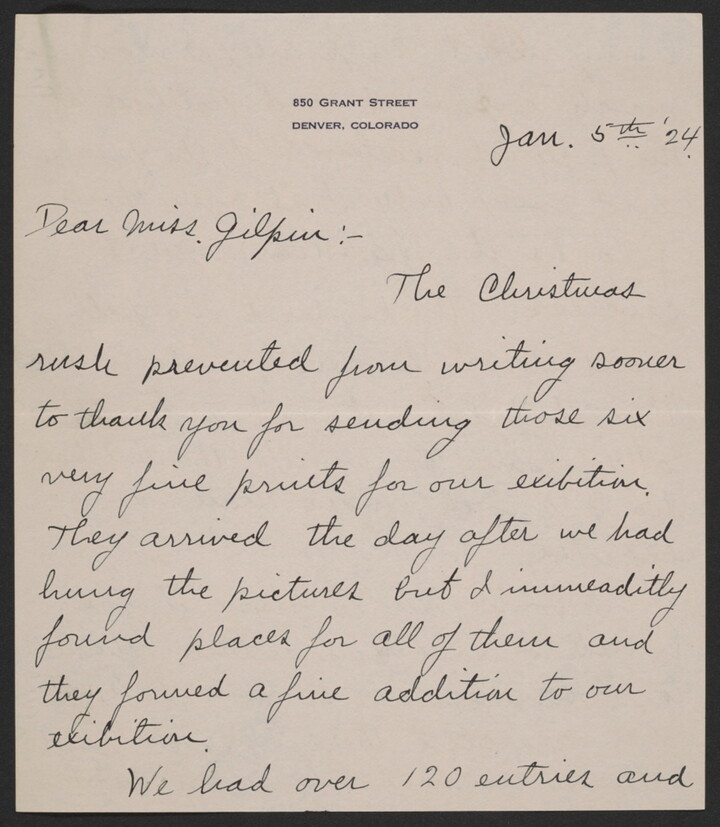 850 GRANT STREET
DENVER, COLORADO
Jan. 5th '24.
Dear Miss. Gilpin:-
The Christmas
rush prevented from writing sooner
to thank you for sending those six
very fine prints for our exibition.
They arrived the day after we had
hung the pictures but I immeaditly
found places for all of them and
they formed a fine addition to our
exibition.
We had over 120 entries and